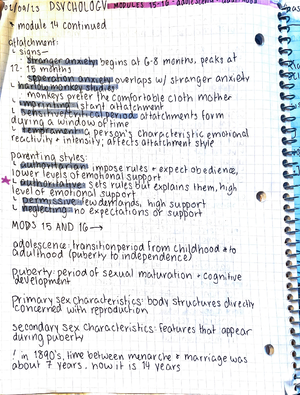 02/09/23 PSYCHOLOGY MODULES 15-16
* module 14 continued
attachment:
↳ signs-
↳ stranger anxiety begins at 6-8 months, peaks at
12-15 months
↳ separation anxiety overlaps w/ stranger anxiety
↳ harlow monkey studies
monkeys prefer the comfortable cloth mother
↳ imprinting: instant attachment
↳ sensitive/critical period: attachments form
during a window of time
↳ temprament: a person's characteristic emotional
reactivity + intensity; affects attachment style
parenting styles:
↳ authoritarian: impose rules + expect obedience,
lower levels of emotional support
★ ↳ authoritative: sets rules but explains them, high
level of emotional support
↳ permissive: few demands, high support
↳ neglecting: no expectations or support
MODS 15 AND 16 →
adolescence: transition period from childhood to
adulthood (puberty to independence)
puberty: period of sexual maturation + cognitive
development
primary sex characteristics: body structures directly
concerned with reproduction
secondary sex characteristics: features that appear
during puberty
! in 1890's, time between menarche + marriage was
about 7 years. now it is 14 years